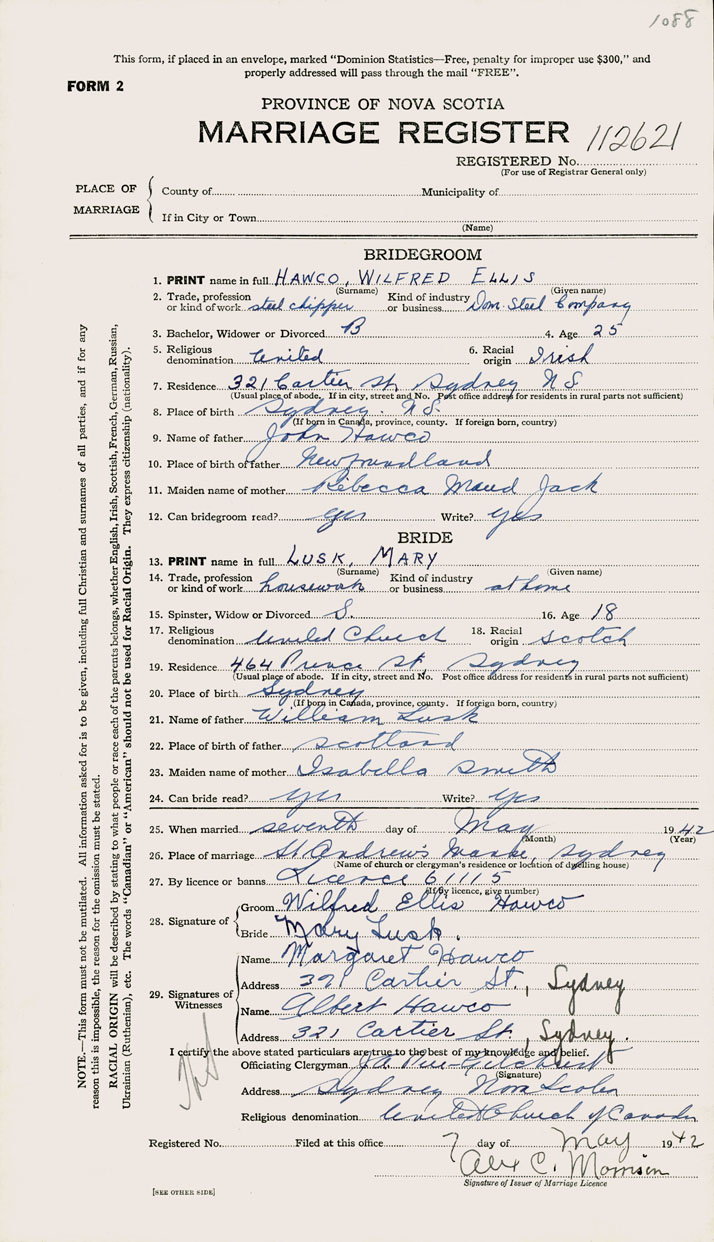 1088
This form, if placed in an envelope, marked "Dominion Statistics—Free, penalty for improper use $300," and
properly addressed will pass through the mail "FREE".
FORM 2
PROVINCE OF NOVA SCOTIA
MARRIAGE REGISTER 112621
REGISTERED No.
(For use of Registrar General only)
PLACE OF MARRIAGE
County of Municipality of
If in City or Town
(Name)
BRIDEGROOM
1. PRINT name in full HAWCO, WILFRED ELLIS
(Surname) (Given name)
2. Trade, profession or kind of work steel chipper Kind of industry or business Dom. Steel Company
3. Bachelor, Widower or Divorced B 4. Age 25
5. Religious denomination United 6. Racial origin Irish
7. Residence 321 Cartier St, Sydney N S
(Usual place of abode. If in city, street and No. Post office address for residents in rural parts not sufficient)
8. Place of birth Sydney. N.S.
(If born in Canada, province, county. If foreign born, country)
9. Name of father John Hawco
10. Place of birth of father Newfoundland
11. Maiden name of mother Rebecca Maud Jack
12. Can bridegroom read? yes Write? yes
BRIDE
13. PRINT name in full LUSK, MARY
(Surname) (Given name)
14. Trade, profession or kind of work housework Kind of industry or business at home
15. Spinster, Widow or Divorced S. 16. Age 18
17. Religious denomination United Church 18. Racial origin Scotch
19. Residence 464 Prince St, Sydney
(Usual place of abode. If in city, street and No. Post office address for residents in rural parts not sufficient)
20. Place of birth Sydney
(If born in Canada, province, county. If foreign born, country)
21. Name of father William Lusk
22. Place of birth of father Scotland
23. Maiden name of mother Isabella Smith
24. Can bride read? yes Write? yes
25. When married seventh day of May 1942
(Month) (Year)
26. Place of marriage St Andrew's Manse, Sydney
(Name of church or clergyman's residence or location of dwelling house)
27. By licence or banns Licence 61115
(If by licence, give number)
28. Signature of
Groom Wilfred Ellis Hawco
Bride Mary Lusk.
29. Signatures of Witnesses
Name Margaret Hawco
Address 321 Cartier St., Sydney
Name Albert Hawco
Address 321 Cartier St., Sydney.
I certify the above stated particulars are true to the best of my knowledge and belief.
Officiating Clergyman
(Signature)
Address Sydney Nova Scotia
Religious denomination United Church of Canada
Registered No. Filed at this office 7 day of May 1942
Alex C. Morrison
Signature of Issuer of Marriage Licence
[SEE OTHER SIDE]
NOTE.—This form must not be mutilated. All information asked for is to be given, including full Christian and surnames of all parties, and if for any
reason this is impossible, the reason for the omission must be stated.
RACIAL ORIGIN will be described by stating to what people or race each of the parents belongs, whether English, Irish, Scottish, French, German, Russian,
Ukrainian (Ruthenian), etc. The words "Canadian" or "American" should not be used for Racial Origin. They express citizenship (nationality).